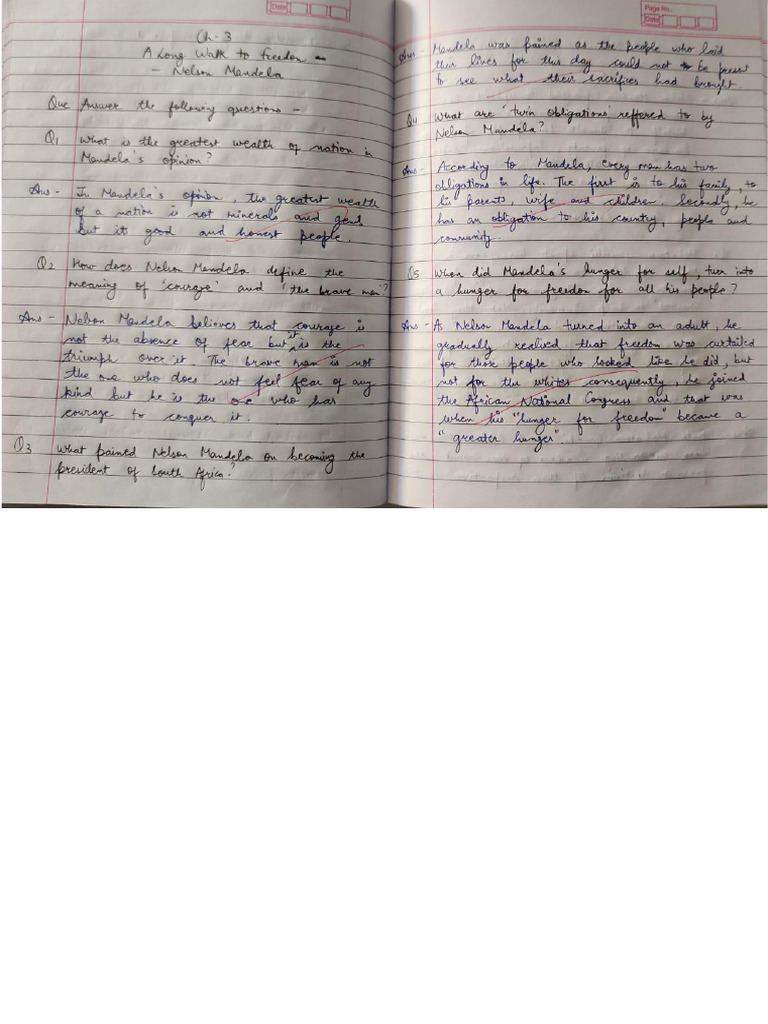 Date
Ch-3
A Long Walk to Freedom -
- Nelson Mandela
Que Answer the following questions -
Q1 What is the greatest wealth of nation in
Mandela's opinion?
Ans - In Mandela's opinion, the greatest wealth
of a nation is not minerals and gems
but it good and honest people.
Q2 How does Nelson Mandela define the
meaning of 'courage' and 'the brave man'?
Ans - Nelson Mandela believes that courage is
not the absence of fear but it is the
triumph over it. The brave man is not
the one who does not feel fear of any
kind but he is the one who has
courage to conquer it.
Q3 What pained Nelson Mandela on becoming the
president of South Africa?
Page No.
Date
Ans - Mandela was pained as the people who laid
their lives for this day could not to be present
to see what their sacrifices had brought.
Q4 What are 'twin obligations' reffered to by
Nelson Mandela?
Ans - According to Mandela, every man has two
obligations in life. The first is to his family, to
his parents, wife and children. Secondly, he
has an obligation to his country, people and
community.
Q5 When did Mandela's hunger for self, turn into
a hunger for freedom for all his people?
Ans - As Nelson Mandela turned into an adult, he
gradually realised that freedom was curtailed
for those people who looked like he did, but
not for the whites consequently, he joined
the African National Congress and that was
when his "hunger for freedom" became a
"greater hunger".